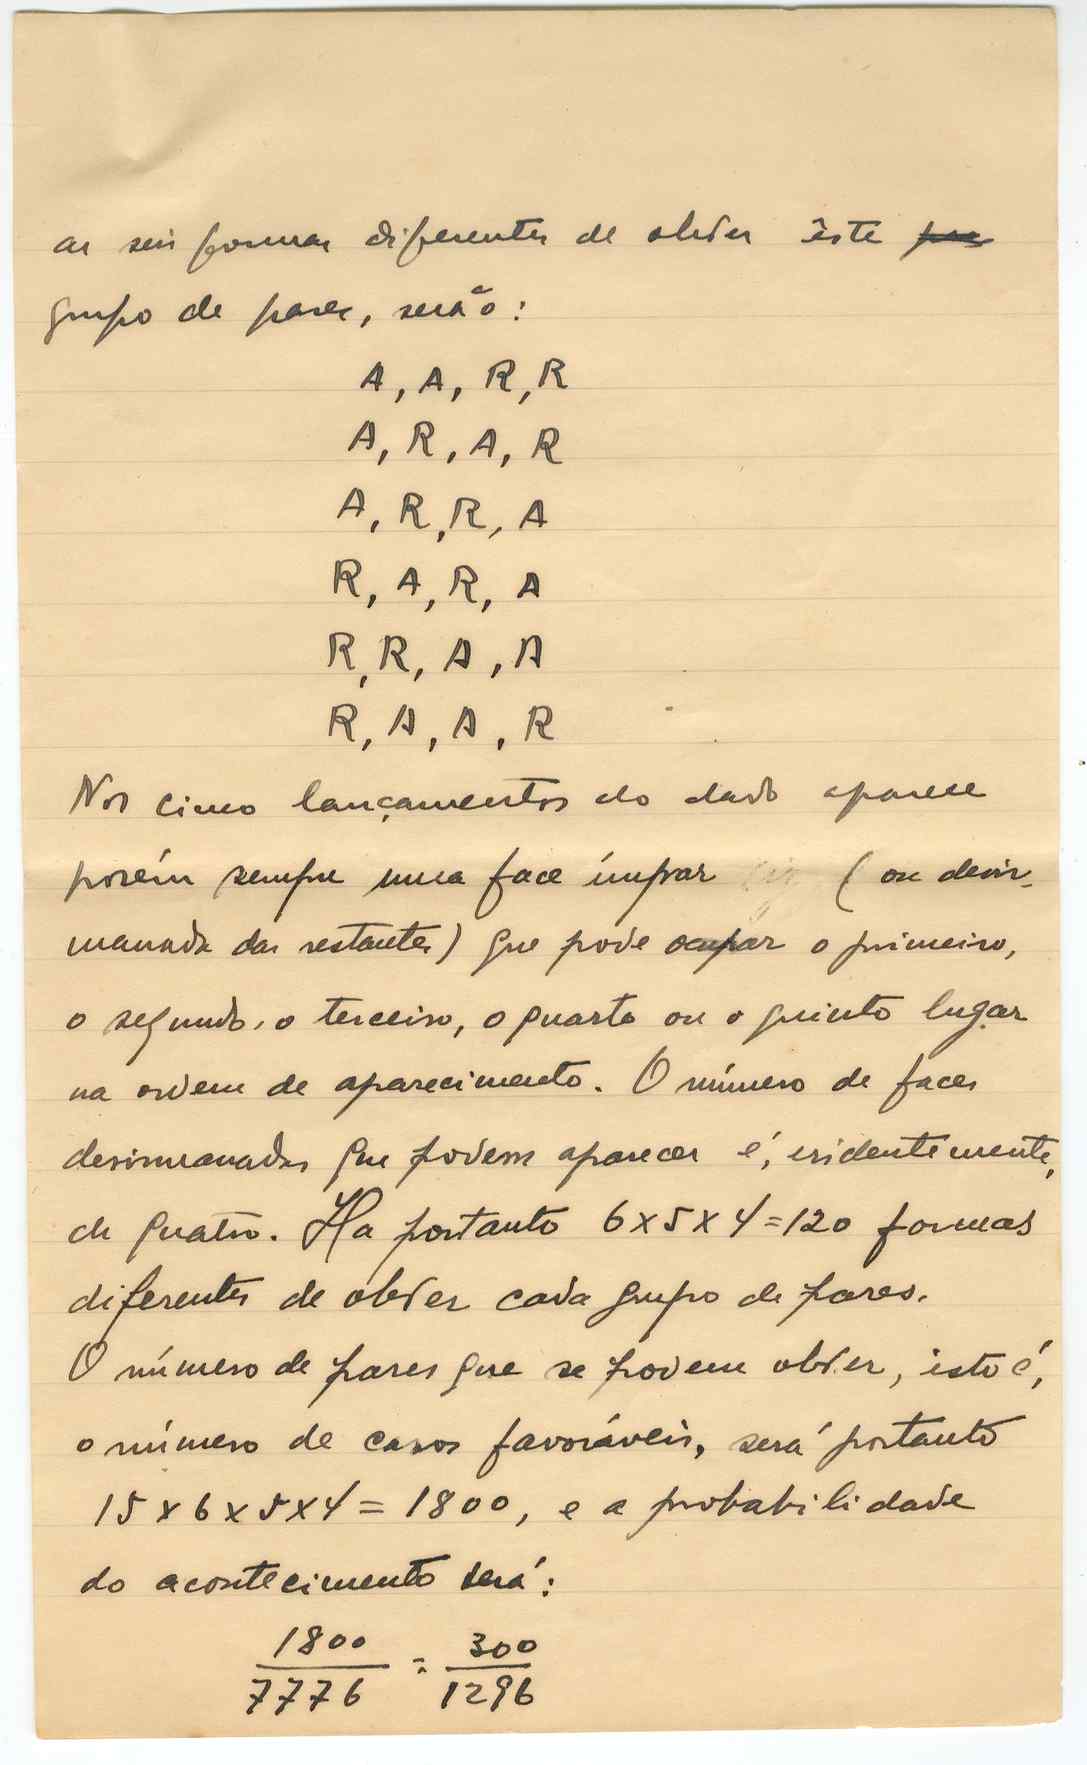 as seis formas diferentes de obter êste
grupo de pares, serão:
A, A, R, R
A, R, A, R
A, R, R, A
R, A, R, A
R, R, A, A
R, A, A, R
Nos cinco lançamentos do dado aparece
porém sempre uma face ímpar (ou desir-
manada das restantes) que pode ocupar o primeiro,
o segundo, o terceiro, o quarto ou o quinto lugar
na ordem de aparecimento. O número de faces
desirmanadas que podem aparecer é, evidentemente,
de quatro. Ha portanto 6x5x4=120 formas
diferentes de obter cada grupo de pares.
O número de pares que se podem obter, isto é,
o número de casos favoráveis, será portanto
15x6x5x4=1800, e a probabilidade
do acontecimento será:
1800/7776 = 300/1296